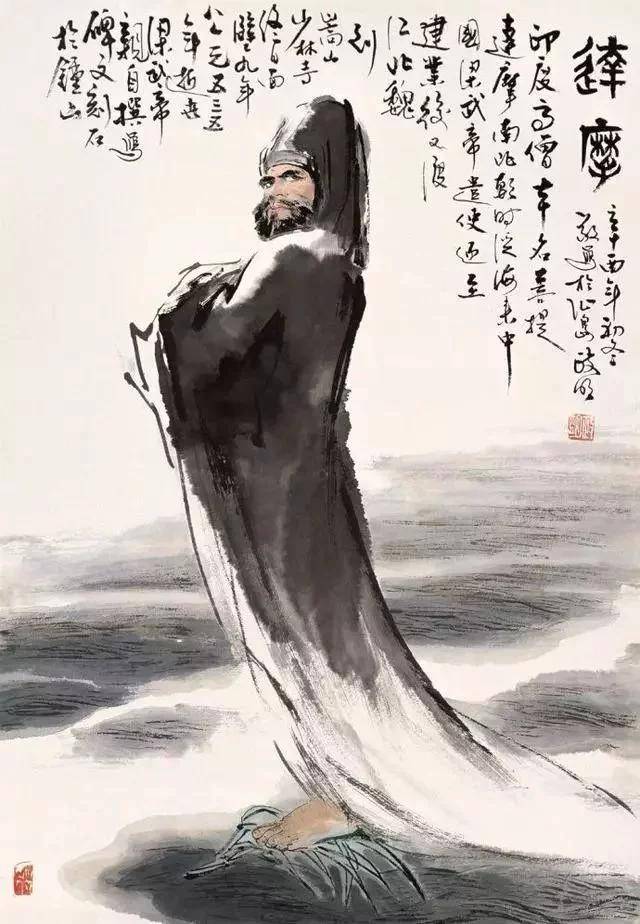 達摩
辛酉年初冬
寫於
印度高僧本名菩提
達摩南北朝時從海來中
國梁武帝遣使迎至
建業後又渡
江北魏
到
嵩山
少林寺
終日面
壁九年
公元五三五
年逝世
梁武帝
親自撰寫
碑文刻石
於鐘山